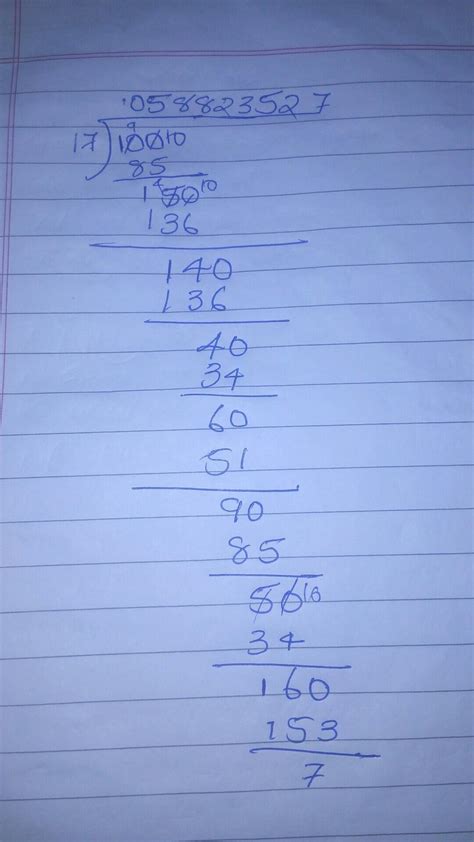 .058823527
9
17)10010
85
1 4 50 10
136
140
136
40
34
60
51
90
85
50 10
34
160
153
7